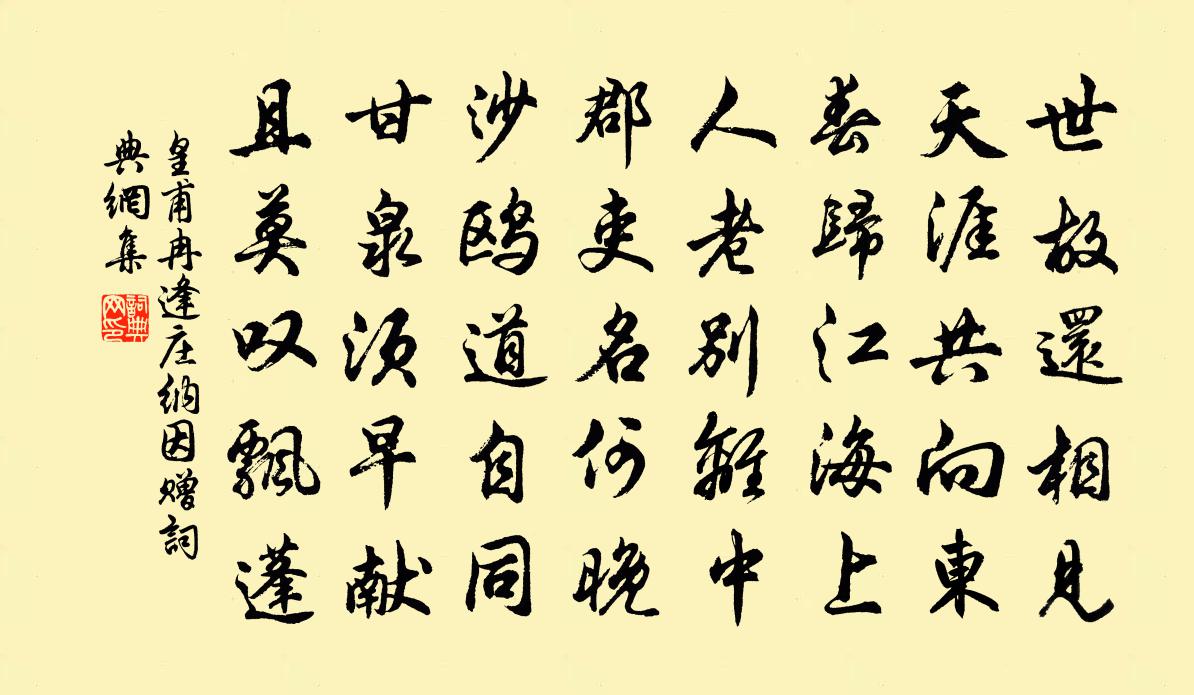 世故還相見
天涯共向東
春歸江海上
人老別離中
郡吏名何晚
沙鷗道自同
甘泉須早献
且莫叹飄蓬
皇甫冉逢庄納因赠詞
典網集
詞典
网印